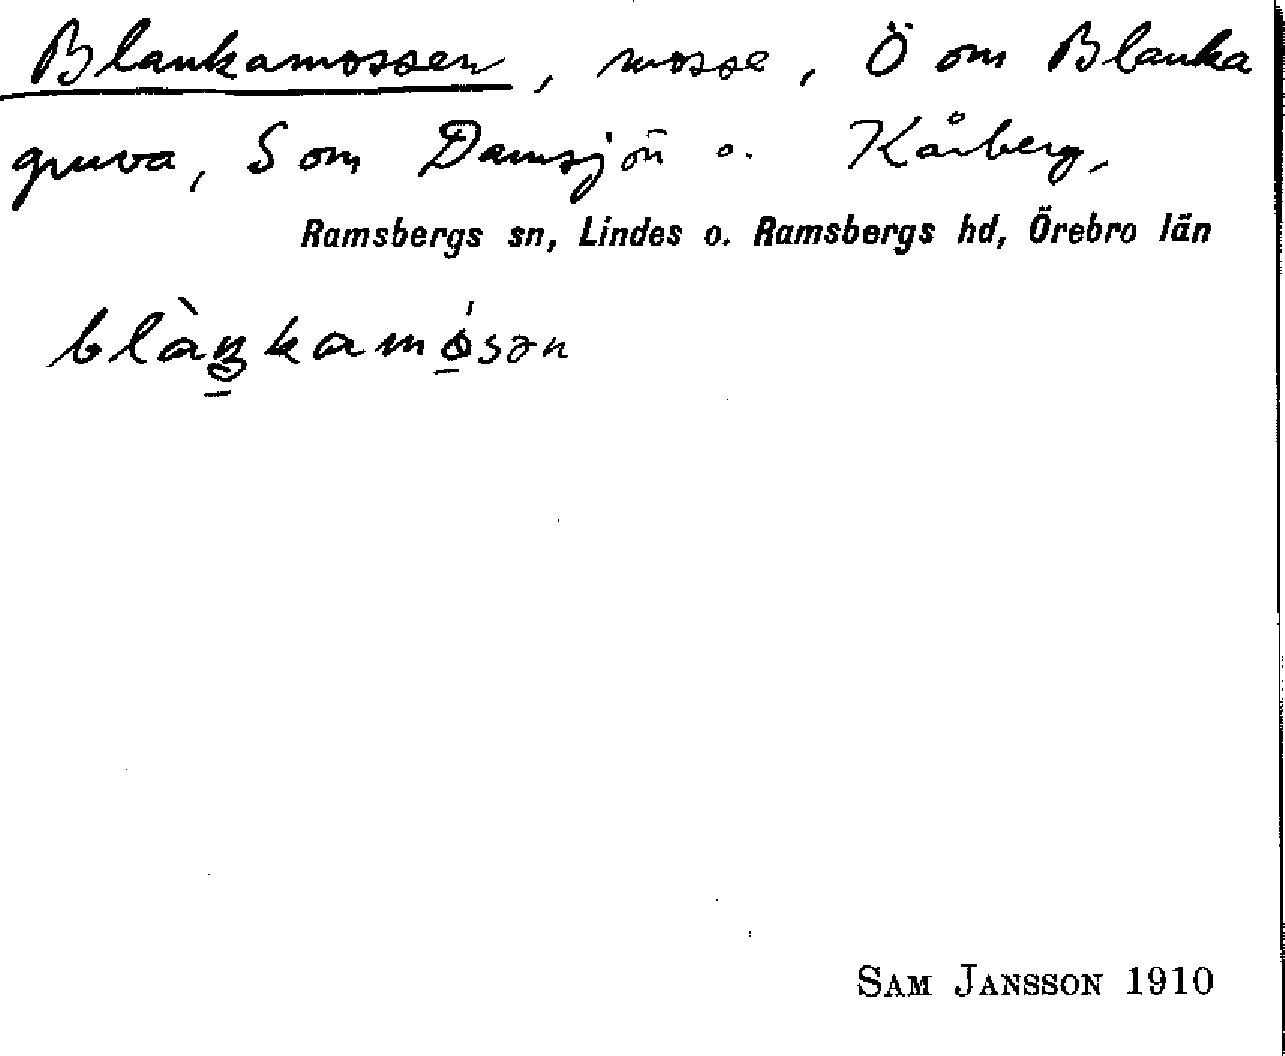 Blankamossen, mosse, Ö om Blanka
gruva, S om Damsjön o. Kårberg,
Ramsbergs sn, Lindes o. Ramsbergs hd, Örebro län
blàŋkamósən
SAM JANSSON 1910